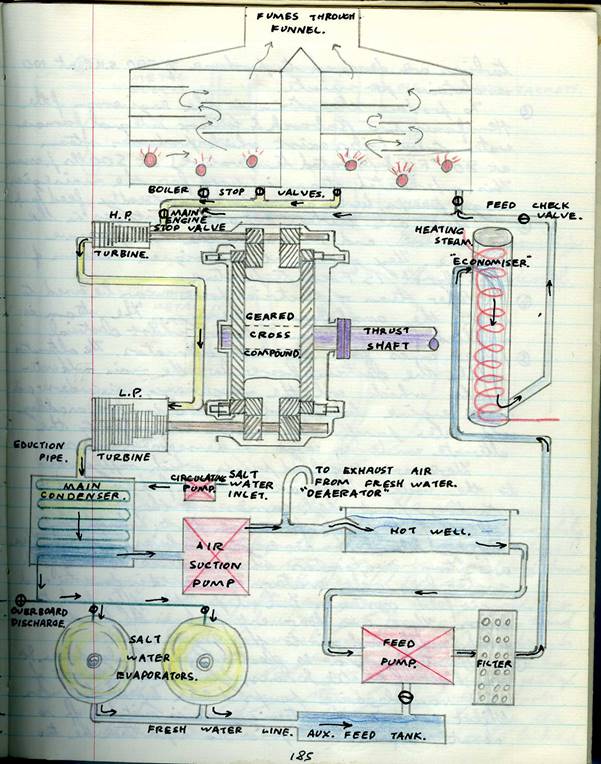 FUMES THROUGH
FUNNEL.
BOILER STOP VALVES.
MAIN
ENGINE
STOP VALVE
FEED CHECK
VALVE.
H.P.
TURBINE.
HEATING
STEAM.
"ECONOMISER."
GEARED
CROSS
COMPOUND.
THRUST
SHAFT
L.P.
TURBINE
EDUCTION
PIPE.
MAIN
CONDENSER.
CIRCULATING
PUMP.
SALT
WATER
INLET.
TO EXHAUST AIR
FROM FRESH WATER.
"DEAERATOR"
HOT WELL.
AIR
SUCTION
PUMP
OVERBOARD
DISCHARGE
SALT
WATER
EVAPORATORS.
FEED
PUMP.
FILTER
FRESH WATER LINE.
AUX. FEED TANK.
185